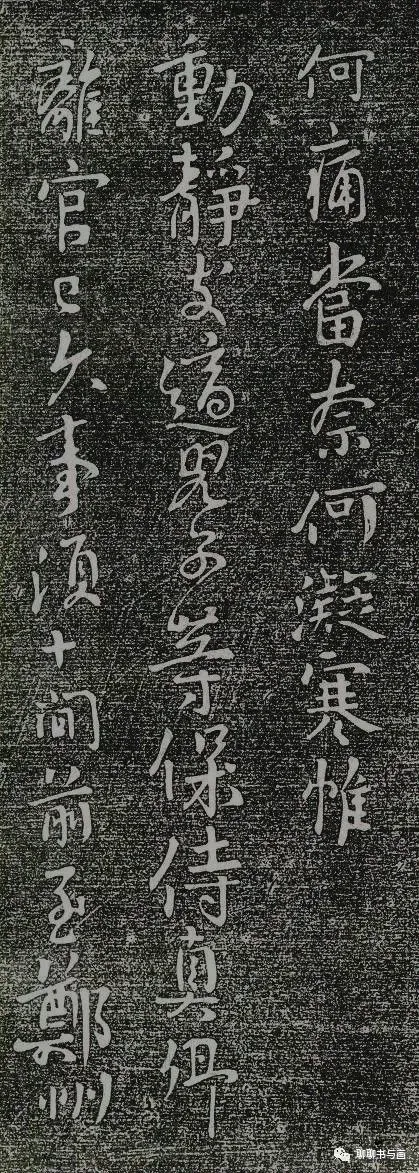 何痛當奈何凝寒惟
動靜支適子等保侍真卿
離官已久事須十間前至鄭州
聊聊书与画